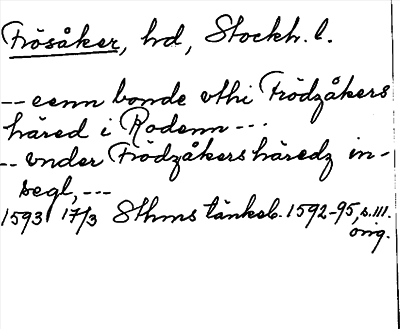 Frösåker, hd, Stockh. l.
-- eenn bonde vthi Frödzåkers
häred i Rodenn ---
-- vnder Frödzåkers häredz in-
segl, ---
1593 17/3 Sthms tänkeb. 1592-95, s. 111.
orig.